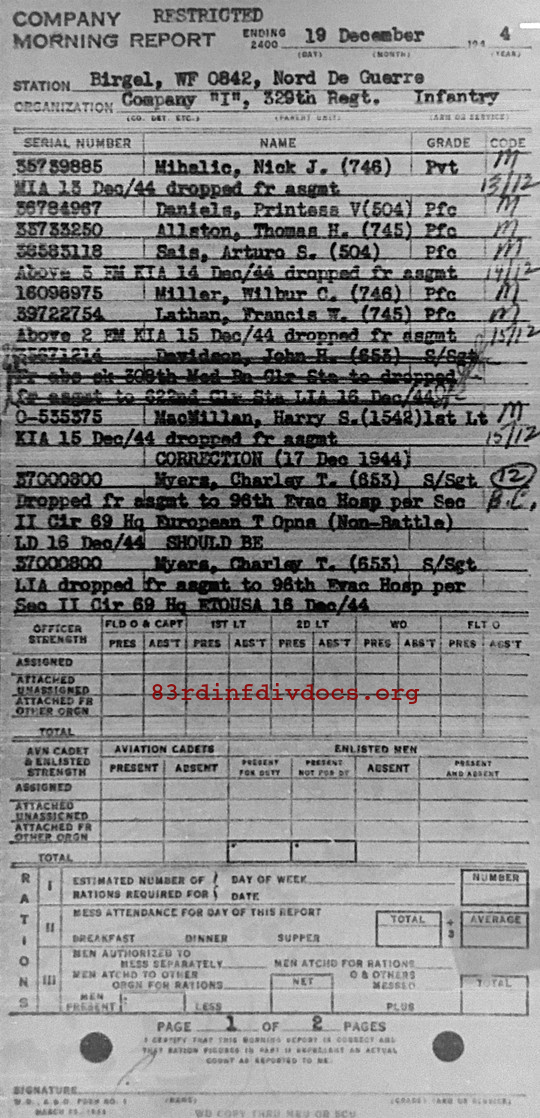 COMPANY RESTRICTED
MORNING REPORT ENDING 2400 19 December 194 4
(DAY) (MONTH) (YEAR)
STATION Birgel, WF 0842, Nord De Guerre
ORGANIZATION Company "I", 329th Regt. Infantry
(CO. DET. ETC.) (PARENT UNIT) (ARM OR SERVICE)
SERIAL NUMBER NAME GRADE CODE
35739885 Mihalic, Nick J. (746) Pvt M
MIA 13 Dec/44 dropped fr asgmt 13/12
36784967 Daniels, Printess V(504) Pfc M
35733250 Allston, Thomas H. (745) Pfc M
38583118 Sais, Arturo S. (504) Pfc M
Above 3 EM KIA 14 Dec/44 dropped fr asgmt 14/12
16098975 Miller, Wilbur C. (746) Pfc M
39722754 Lathan, Francis W. (745) Pfc M
Above 2 EM KIA 15 Dec/44 dropped fr asgmt 15/12
Davidson, John H. (653) S/Sgt
fr abs sk 308th Med Bn Clr Sta to dropped
fr asgmt to 622nd Clr Sta LIA 16 Dec/44
O-535375 MacMillan, Harry S.(1542)1st Lt M
KIA 15 Dec/44 dropped fr asgmt 15/12
CORRECTION (17 Dec 1944)
37000800 Myers, Charley T. (653) S/Sgt 12
Dropped fr asgmt to 96th Evac Hosp per Sec B.C.
II Cir 69 Hq European T Opns (Non-Battle)
LD 16 Dec/44 SHOULD BE
37000800 Myers, Charley T. (653) S/Sgt
LIA dropped fr asgmt to 96th Evac Hosp per
Sec II Cir 69 Hq ETOUSA 16 Dec/44
OFFICER STRENGTH FLD O & CAPT 1ST LT 2D LT WO FLT O
PRES ABS'T PRES ABS'T PRES ABS'T PRES ABS'T PRES ABS'T
ASSIGNED
ATTACHED UNASSIGNED
83rdinfdivdocs.org
ATTACHED FR OTHER ORGN
TOTAL
AVN CADET & ENLISTED STRENGTH AVIATION CADETS ENLISTED MEN
PRESENT ABSENT PRESENT FOR DUTY PRESENT NOT FOR DY ABSENT PRESENT AND ABSENT
ASSIGNED
ATTACHED UNASSIGNED
ATTACHED FR OTHER ORGN
TOTAL
RATIONS
I ESTIMATED NUMBER OF RATIONS REQUIRED FOR DAY OF WEEK NUMBER
DATE
II MESS ATTENDANCE FOR DAY OF THIS REPORT TOTAL ÷ 3 AVERAGE
BREAKFAST DINNER SUPPER
III MEN AUTHORIZED TO MESS SEPARATELY MEN ATCHD FOR RATIONS
MEN ATCHD TO OTHER ORGN FOR RATIONS NET O & OTHERS MESSED TOTAL
MEN PRESENT LESS PLUS
PAGE 1 OF 2 PAGES
I CERTIFY THAT THIS MORNING REPORT IS CORRECT AND
THAT RATION FIGURES IN PART III REPRESENT AN ACTUAL
COUNT AS REPORTED TO ME.
SIGNATURE
W.D., A.G.O. FORM NO. 1 (NAME) (GRADE) (ARM OR SERVICE)
WD COPY THRU MRU OR SCU